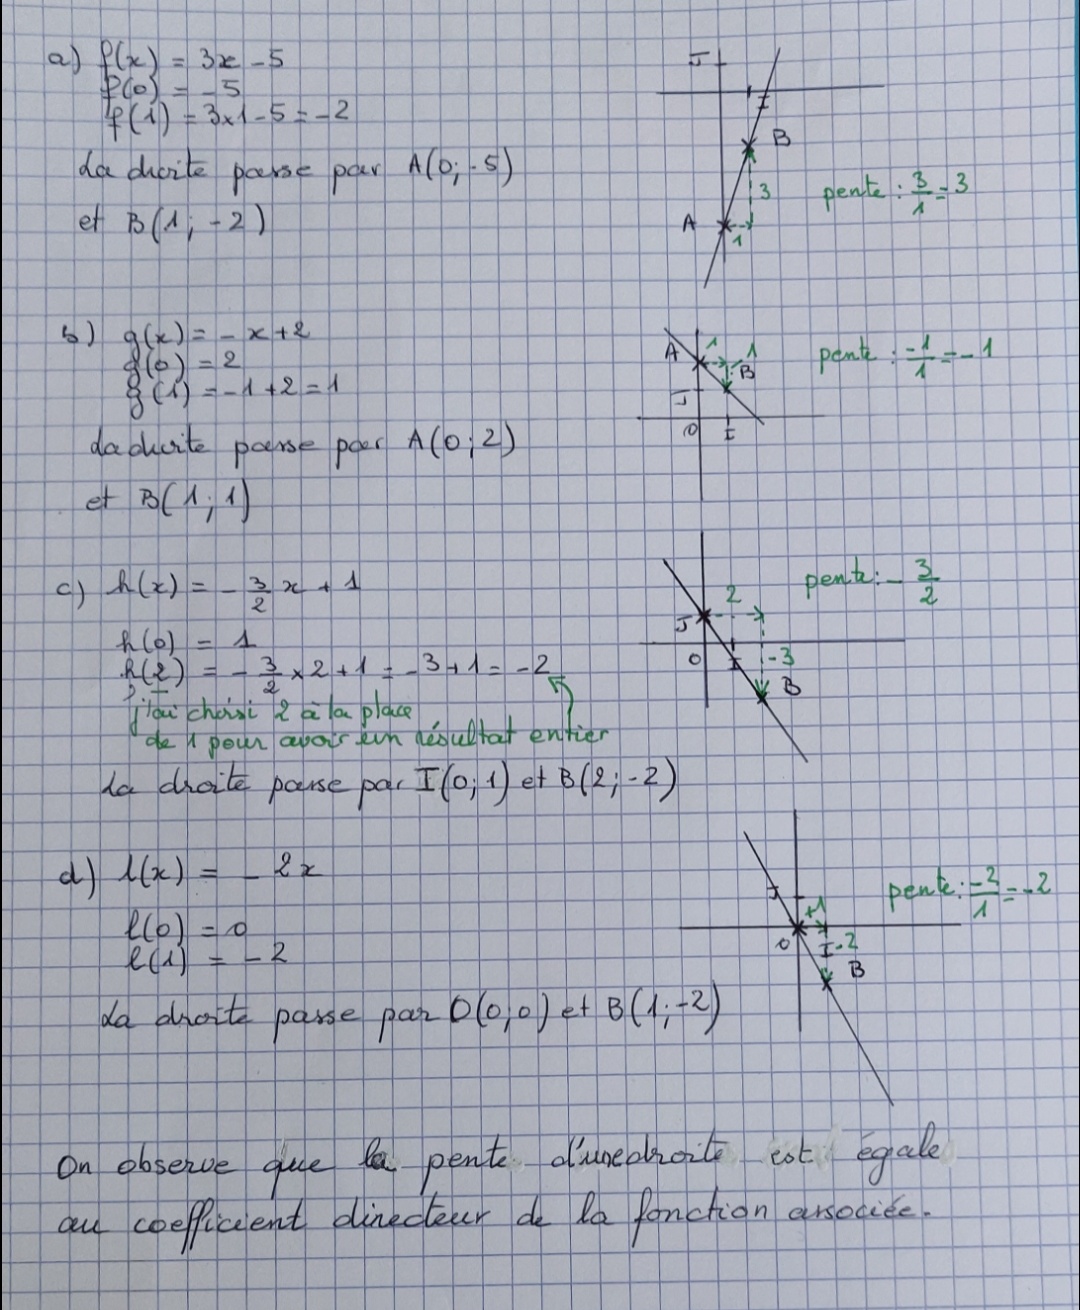 a) f(x) = 3x - 5
f(0) = - 5
f(1) = 3x1-5 = -2
La droite passe par A(0; -5)
et B(1; -2)
J
I
B
3
pente : 3/1 = 3
A
1
b) g(x) = - x+2
g(0) = 2
g(1) = -1+2 = 1
La droite passe par A(0; 2)
et B(1; 1)
A
1
-1
B
pente : -1/1 = -1
J
O
I
c) h(x) = - 3/2 x + 1
h(0) = 1
h(2) = - 3/2 x 2 + 1 = -3+1 = -2
j'ai choisi 2 à la place
de 1 pour avoir un résultat entier
La droite passe par I(0; 1) et B(2; -2)
pente : - 3/2
2
J
O
I
-3
B
d) l(x) = - 2x
l(0) = 0
l(1) = - 2
La droite passe par O(0; 0) et B(1; -2)
J
+1
pente : -2/1 = -2
O
I
-2
B
On observe que la pente d'une droite est égale
au coefficient directeur de la fonction associée.